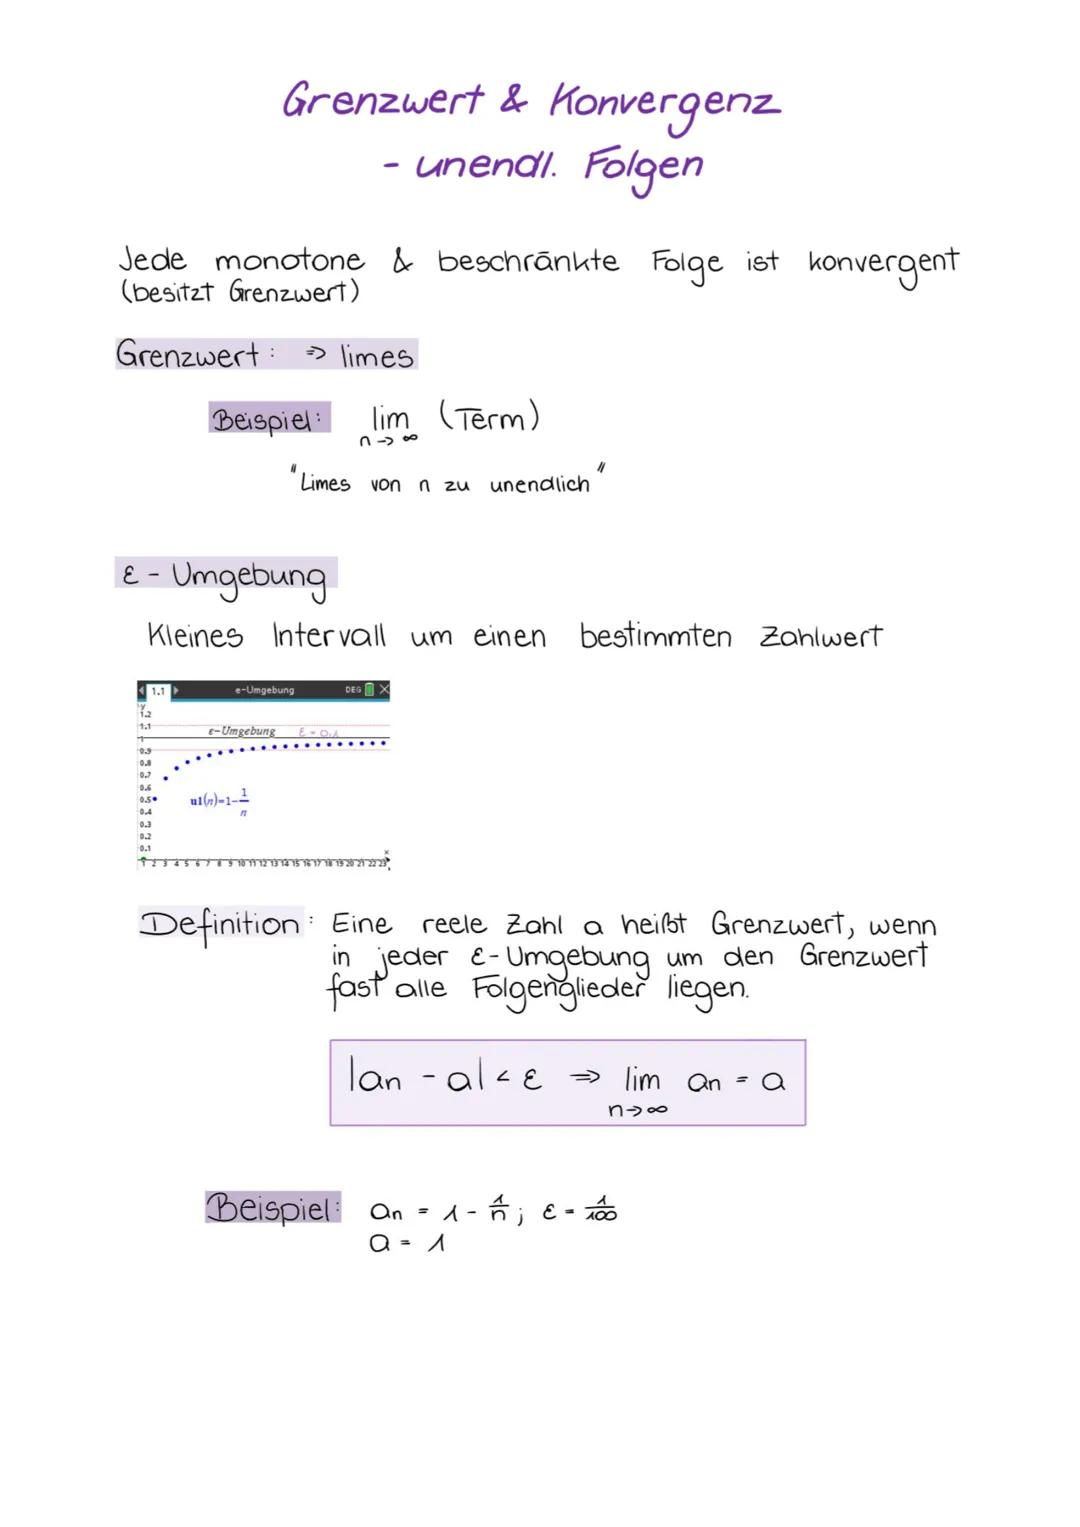 Grenzwert & Konvergenz
- unendl. Folgen
Jede monotone & beschränkte Folge ist konvergent
(besitzt Grenzwert)
Grenzwert: => limes
Beispiel: lim (Term)
n -> ∞
"Limes von n zu unendlich"
ε - Umgebung
Kleines Intervall um einen bestimmten Zahlwert
1.1 e-Umgebung DEG
y
1.2
1.1
ε-Umgebung ε = 0.1
1
0.9
0.8
0.7
0.6
0.5
u1(n)=1-1/n
0.4
0.3
0.2
0.1
x
1 2 3 4 5 6 7 8 9 10 11 12 13 14 15 16 17 18 19 20 21 22 23
Definition: Eine reele Zahl a heißt Grenzwert, wenn
in jeder ε-Umgebung um den Grenzwert
fast alle Folgenglieder liegen.
|an - a| < ε => lim an = a
n->∞
Beispiel: an = 1 - 1/n; ε = 1/100
a = 1